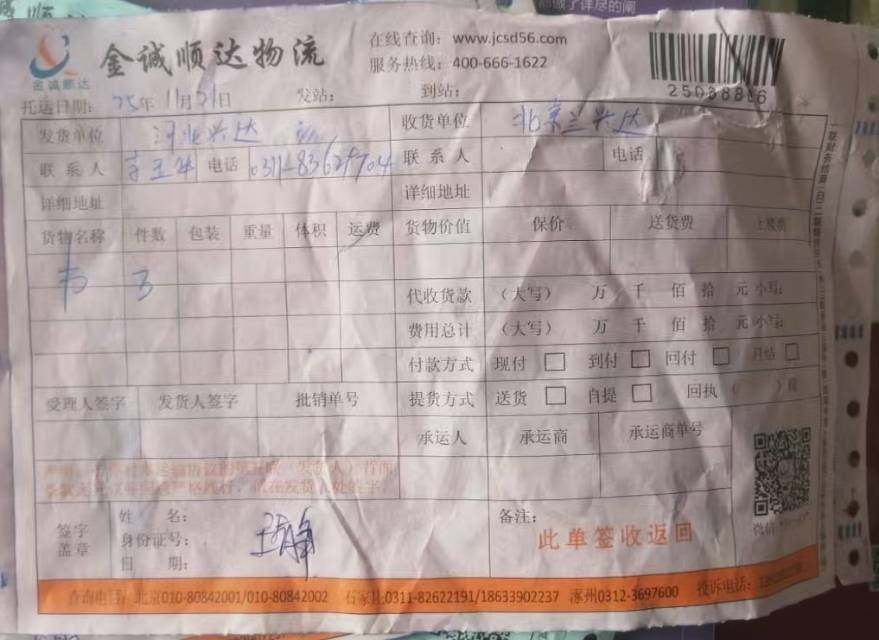 金诚顺达物流
金诚顺达
在线查询：www.jcsd56.com
服务热线：400-666-1622
25088816
托运日期：25年11月21日 发站： 到站：
发货单位 河北兴达 收货单位 北京兰兴达
联系人 电话 0311-83627704 联系人 电话
详细地址 详细地址
货物名称 件数 包装 重量 体积 运费 货物价值 保价 送货费 上楼费
书 3
代收货款 （大写） 万 千 佰 拾 元 小写：
费用总计 （大写） 万 千 佰 拾 元 小写：
付款方式 现付 到付 回付 月结
受理人签字 发货人签字 批销单号 提货方式 送货 自提 回执（ ）
承运人 承运商 承运商单号
签字盖章
姓 名：
身份证号：
日 期：
备注：
此单签收返回
微信
查询电话：北京010-80842001/010-80842002 石家庄0311-82622191/18633902237 涿州0312-3697600 投诉电话：